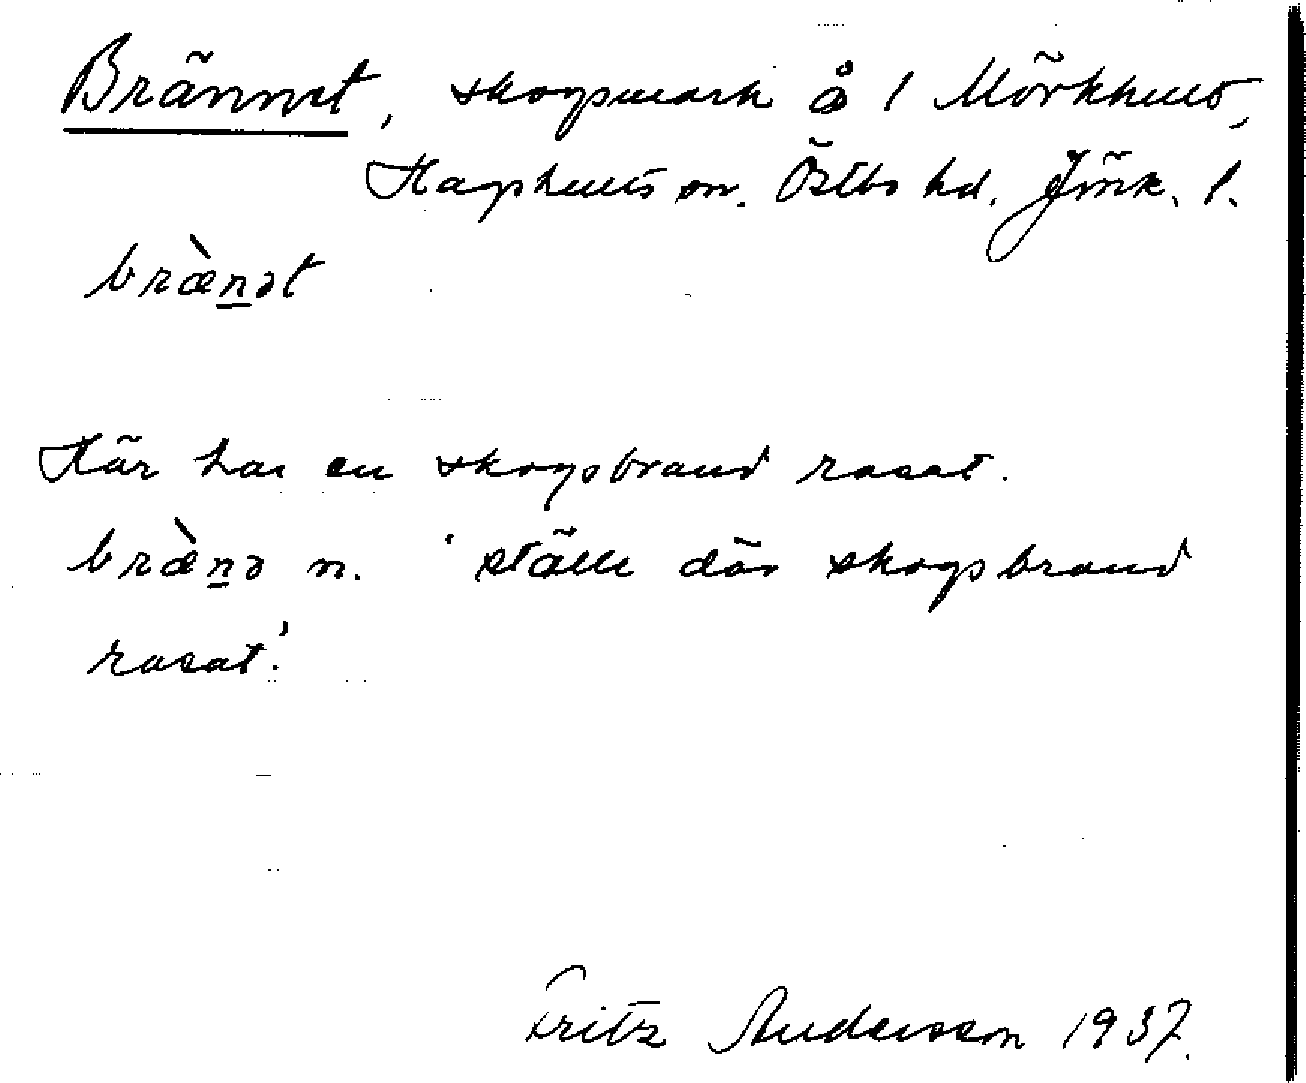 Brännet, skogsmark å 1 Mörkhult,
Hagshults sn. Östbo hd. Jönk. l.
brὰnət
Här har en skogsbrand rasat.
brὰnə n. 'ställe där skogsbrand
rasat.'
Fritz Andersson 1937.